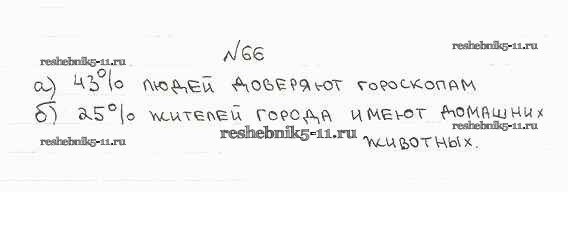 №66
reshebnik5-11.ru
reshebnik5-11.ru
а) 43% людей доверяют гороскопам
б) 25% жителей города имеют домашних
reshebnik5-11.ru
reshebnik5-11.ru
reshebnik5-11.ru
животных.